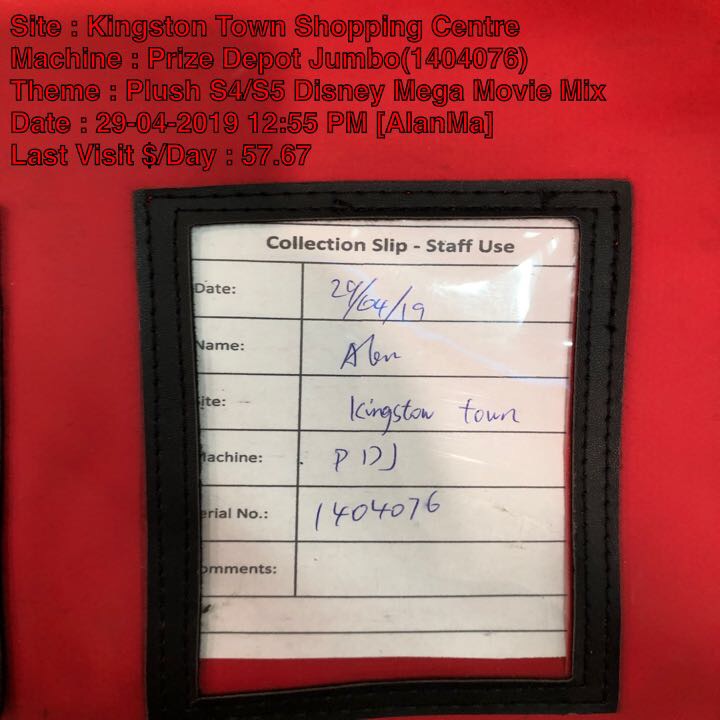 Site : Kingston Town Shopping Centre
Machine : Prize Depot Jumbo(1404076)
Theme : Plush S4/S5 Disney Mega Movie Mix
Date : 29-04-2019 12:55 PM [AlanMa]
Last Visit $/Day : 57.67
Collection Slip - Staff Use
Date: 29/04/19
Name: Alan
ite: Kingston town
Machine: PDJ
erial No.: 1404076
omments: